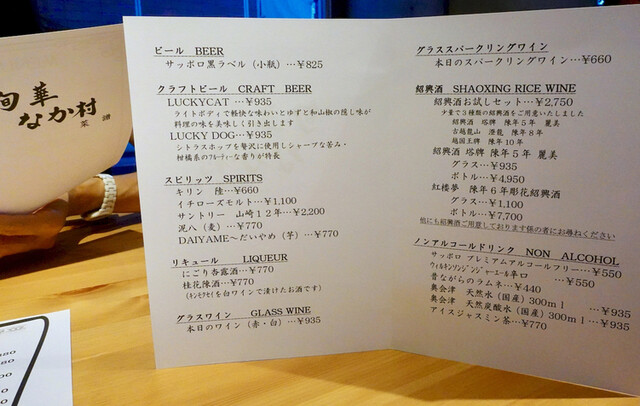 旬華
なか村
菜譜
ビール BEER
サッポロ黒ラベル（小瓶）…¥825
クラフトビール CRAFT BEER
LUCKYCAT …¥935
ライトボディで軽快な味わいとゆずと和山椒の隠し味が
料理の味を美味しく引き出します
LUCKY DOG…¥935
シトラスホップを贅沢に使用しシャープな苦み・
柑橘系のフルーティーな香りが特長
スピリッツ SPIRITS
キリン 陸…¥660
イチローズモルト…¥1,100
サントリー 山崎12年…¥2,200
泥八（麦）…¥770
DAIYAME～だいやめ（芋）…¥770
リキュール LIQUEUR
にごり杏露酒…¥770
桂花陳酒…¥770
（キンモクセイを白ワインで漬けたお酒です）
グラスワイン GLASS WINE
本日のワイン（赤・白）…¥935
グラススパークリングワイン
本日のスパークリングワイン…¥660
紹興酒 SHAOXING RICE WINE
紹興酒お試しセット…¥2,750
少量で3種類の紹興酒をご用意いたしました
紹興酒 塔牌 陳年5年 麗美
古越龍山 澄龍 陳年8年
越国王牌 陳年10年
紹興酒 塔牌 陳年5年 麗美
グラス…¥935
ボトル…¥4,950
紅楼夢 陳年6年彫花紹興酒
グラス…¥1,100
ボトル…¥7,700
他にも紹興酒ご用意しております係の者にお尋ねください
ノンアルコールドリンク NON ALCOHOL
サッポロ プレミアムアルコールフリー…¥550
ウィルキンソンジンジャーエール辛口 …¥550
昔ながらのラムネ…¥440
奥会津 天然水（国産）300ml …¥935
奥会津 天然炭酸水（国産）300ml…¥935
アイスジャスミン茶…¥770